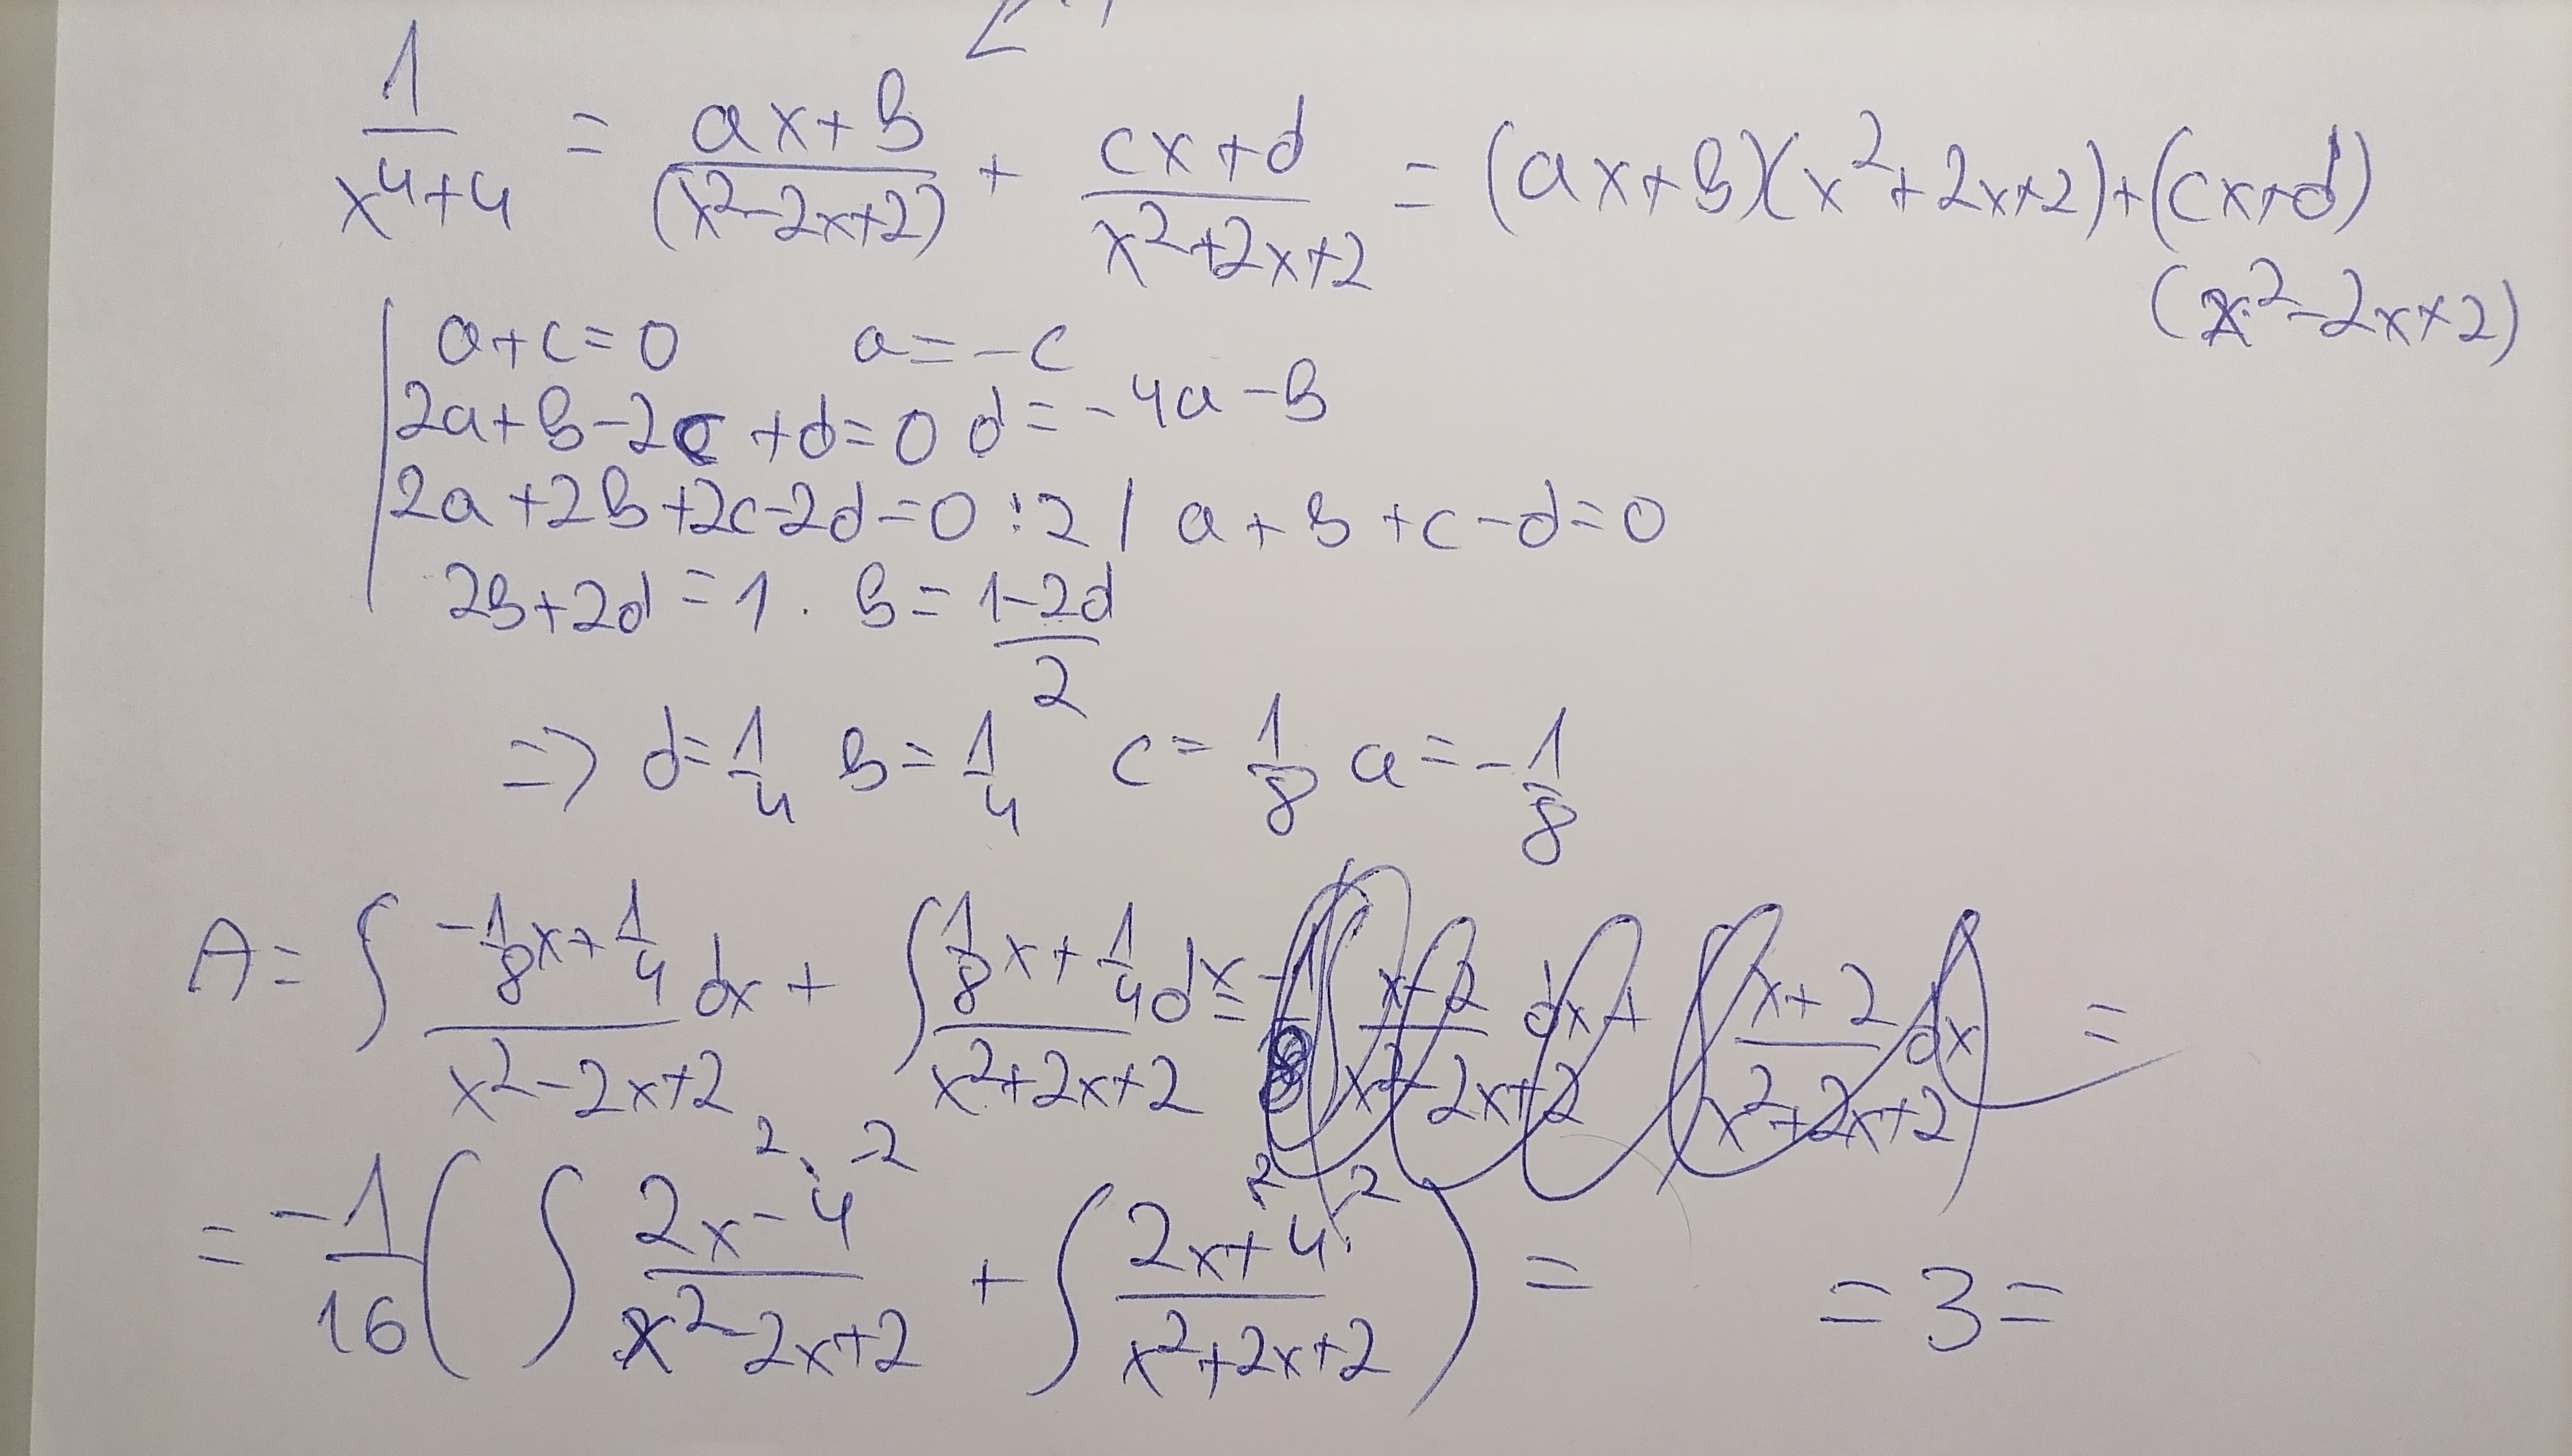 1/(x⁴+4) = (ax+b)/(x²-2x+2) + (cx+d)/(x²+2x+2) = (ax+b)(x²+2x+2)+(cx+d)
(x²-2x+2)
a+c=0 a=-c
2a+b-2c+d=0 d=-4a-b
2a+2b+2c-2d=0 :2| a+b+c-d=0
2b+2d=1. b=(1-2d)/2
=> d=1/4 b=1/4 c=1/8 a=-1/8
A=∫(-1/8x+1/4)/(x²-2x+2)dx+∫(1/8x+1/4)/(x²+2x+2)dx= =
=-1/16(∫(2x-4)/(x²-2x+2)+∫(2x+4)/(x²+2x+2))= =3=